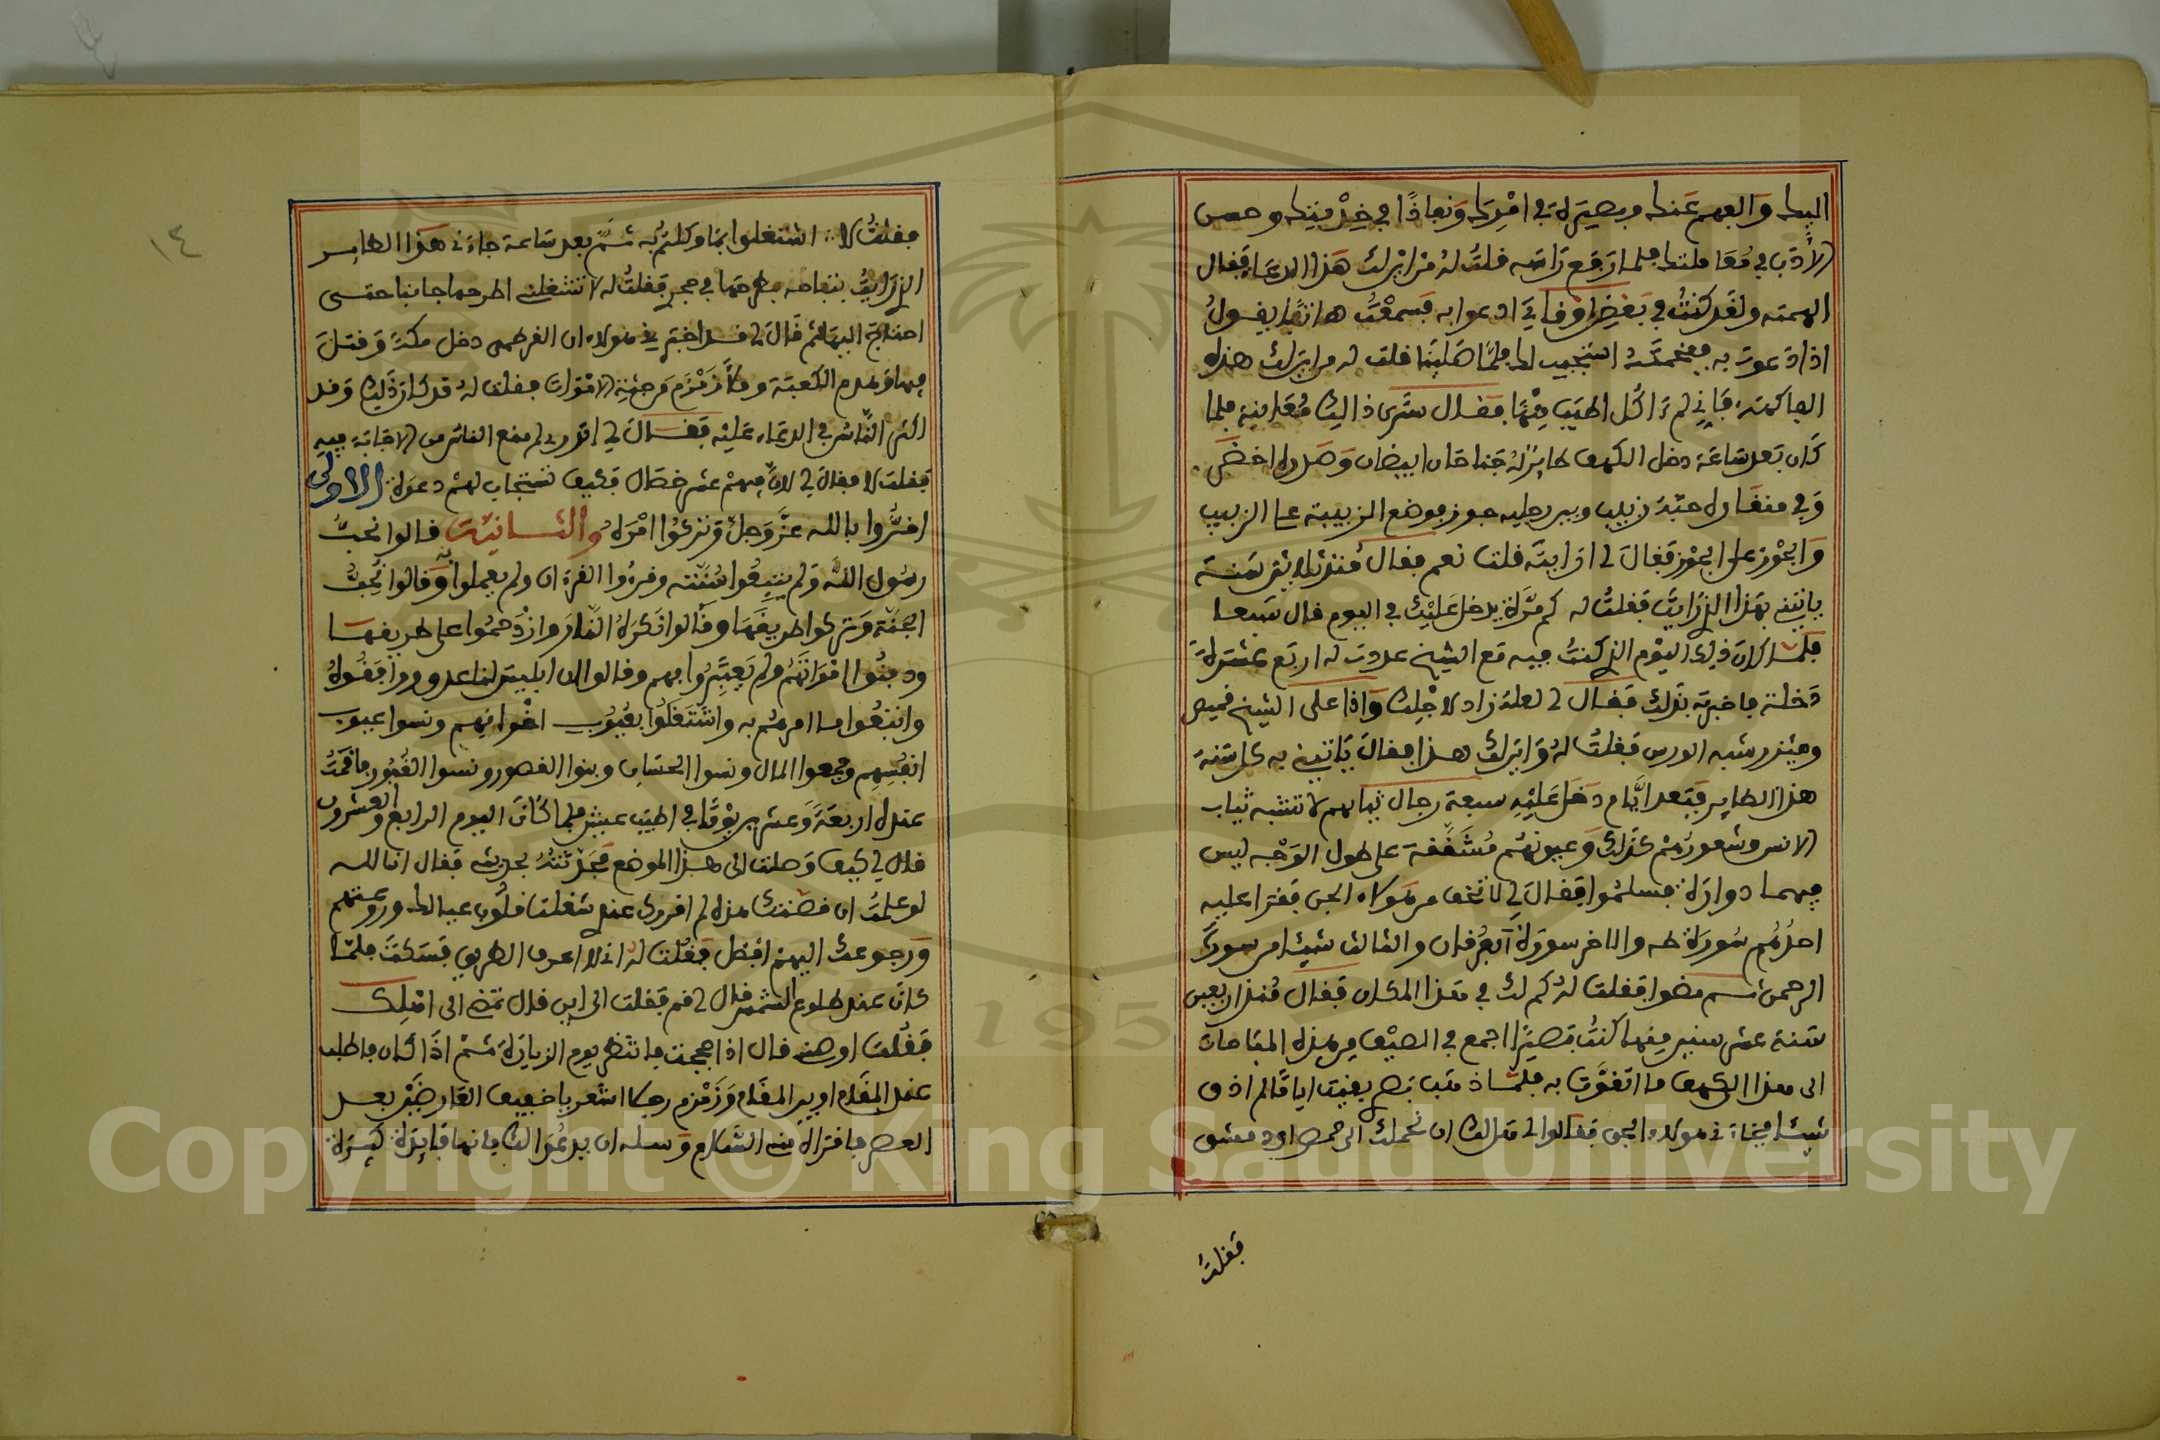 اليك والفهم عنك وبصيرة في امرك ونفاذا في خدمتك وحسن
الأدب في معاملتك فلما رفع راسه قلت له من اين لك هذا الدعاء فقال
الهمته ولقد كنت في بعض اوقاتي ادعوا به فسمعت هاتفا يقول
اذا دعوت به ففخمه استجيب لك فلما صلينا قلت له من اين لك هذه
الفاكهة فاني لم ءاكل اطيب منها فقال سترى ذالك معاينة فلما
كان بعد ساعة دخل الكهف طاير له جناحان ابيضان وصدر اخضر
وفي منقاره حبة زبيب وبين رجليه جوز فوضع الزبيبة على الزبيب
والجوز على الجوز فقال لي ارايته قلت نعم فقال منذ ثلاثين سنة
ياتيني بهذا الزرايب فقلت له كم مرة يدخل عليك في اليوم قال سبعا
فلما كان ذلك اليوم الذي كنت فيه مع الشيخ عددت له اربع عشرة
دخلة فاخبرته بذلك فقال لي لعله زاد لاجلك واذا على الشيخ قميص
وميزر شبه الورس فقلت له من اين لك هذا فقال ياتيني به كل سنة
هذا الطاير فبعد ايام دخل عليه سبعة رجال ثيابهم لا تشبه ثياب
الانس وشعورهم كذلك وعيونهم مشققة على طول الوجه ليس
فيهما دوارة فسلموا فقال لي لا تخف من هولاء الجن فقرا عليه
احدهم سورة طه والاخر سورة الفرقان والثالث شيئا من سورة
الرحمن ثم مضوا فقلت له كم لك في هذا المكان فقال منذ اربعين
سنة عشر سنين منها كنت بصيرا اجمع في الصيف من هذه المباحات
الى هذا الكهف ما اتقوت به فلما ذهب بصري بقيت اياما لم اذق
شيئا فجاءني هولاء الجن فقالوا لي هل لك ان نحملك الى حمص او دمشق
فقلت
١٤
فقلت لا اشتغلوا بما وكلتم به ثم بعد ساعة جاءني هذا الطاير
الزرايب بتفاحة فطرحها في حجري فقلت له لا تشغلني اطرحها جانبا حتى
احتاج اليها ثم قال لي قد اخبرني هولاء ان القرطمي دخل مكة وقتل
فيها وهدم الكعبة وملأ زمزم من جثة الاموات فقلت له قد كان ذلك وقد
اكثر الناس في الدعاء عليه فقال لي اتدري لم منع الناس من الاجابة فيه
فقلت لا فقال لي لان فيهم عشر خصال فكيف تستجاب لهم دعوة الاولى
اقروا بالله عز وجل وتركوا امره والثانية قالوا نحب
رسول الله ولم يتبعوا سنته وقرءوا القرءان ولم يعملوا به وقالوا نحب
الجنة وتركوا طريقها وقالوا نكره النار وازدحموا على طريقها
ودفنوا امواتهم ولم يعتبروا بهم وقالوا ان ابليس لنا عدو ووافقوه
واتبعوا ما امرهم به واشتغلوا بعيوب اخوانهم ونسوا عيوب
انفسهم وجمعوا المال ونسوا الحساب وبنوا القصور ونسوا القبور فاقمت
عنده اربعة وعشرين يوما في اطيب عيش فلما كان اليوم الرابع والعشرون
قال لي كيف وصلت الى هذا الموضع فحدثته بحديثي فقال انا لله
لو علمت ان قصتك هذه لم اتركك عندي شغلت قلوب عيالك وروعتهم
ورجوعك اليهم افضل فقلت له اني لا اعرف الطريق فسكت فلما
كان عند طلوع الشمس قال لي قم فقلت الى اين قال تمضي الى اهلك
فقلت اوصني قال اذا حججت فانتظر يوم الزيارة ثم اذا كان فاطلب
عند المقام او بين المقام وزمزم رجلا اشعر يا خفيف العارضين بعد
العصر فاقراه مني السلام وسله ان يدعو لك فانها فايدة كبيرة